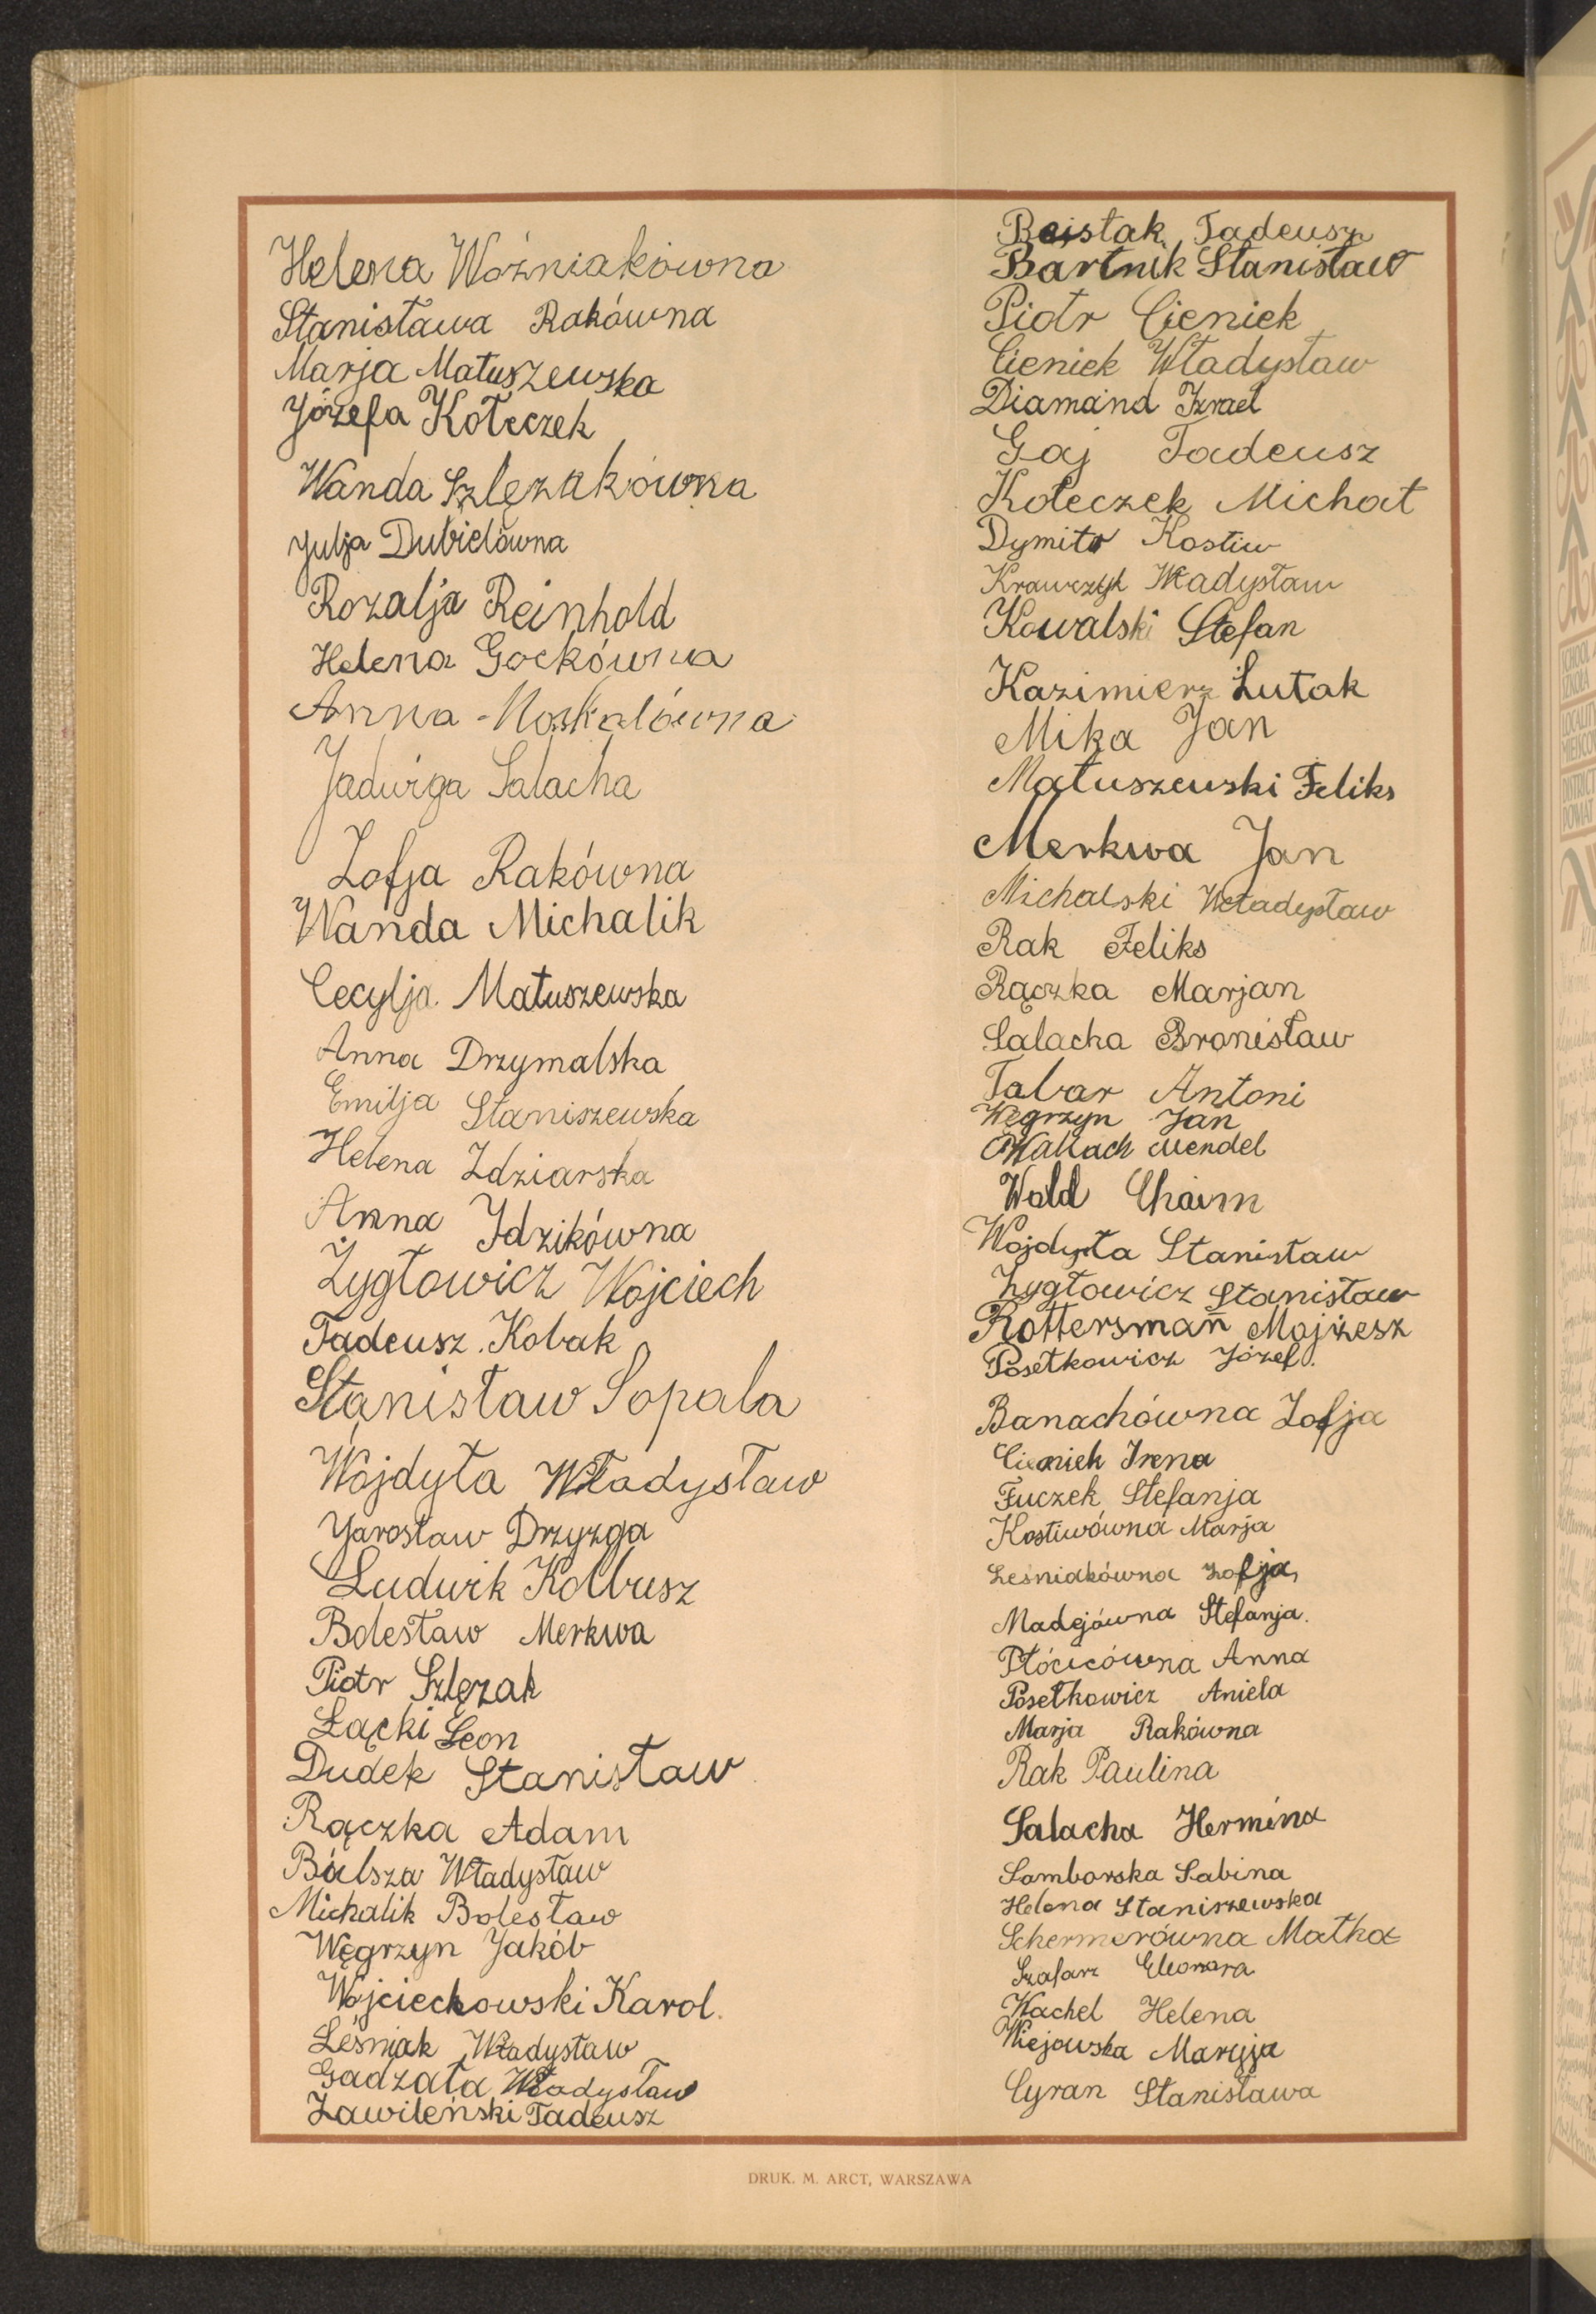 Helena Woźniakówna
Stanisława Rakówna
Marja Matuszewska
Józefa Kołeczek
Wanda Szlęzakówna
Julja Dubielówna
Rozalja Reinhold
Helena Gockówna
Anna Moskalówna
Jadwiga Salacha
Zofja Rakówna
Wanda Michalik
Cecylja Matuszewska
Anna Drzymalska
Emilja Staniszewska
Helena Zdziarska
Anna Idzikówna
Żygłowicz Wojciech
Tadeusz Kobak
Stanisław Sopala
Wojdyła Władysław
Jarosław Drzyzga
Ludwik Kolbusz
Bolesław Merkwa
Piotr Szlęzak
Łącki Leon
Dudek Stanisław
Rączka Adam
Balsza Władysław
Michalik Bolesław
Węgrzyn Jakób
Wojciechowski Karol.
Leśniak Władysław
Gadzała Władysław
Zawileński Tadeusz
Tadeusz
Bartnik Stanisław
Piotr Cieniek
Cieniek Władysław
Diamand Izrael
Gaj Tadeusz
Kołeczek Michał
Dymitr Kostiw
Krawczyk Władysław
Kowalski Stefan
Kazimierz Lutak
Mika Jan
Matuszewski Feliks
Merkwa Jan
Michalski Władysław
Rak Feliks
Rączka Marjan
Salacha Bronisław
Tabar Antoni
Węgrzyn Jan
Wallach Mendel
Wald Chaim
Wojdyła Stanisław
Żygłowicz Stanisław
Rottersman Mojżesz
Posełkowicz Józef.
Banachówna Zofja
Cieniek Irena
Fuczek Stefanja
Kostiwówna Marja
Leśniakówna Zofja,
Madejówna Stefanja.
Płócicówna Anna
Posełkowicz Aniela
Marja Rakówna
Rak Paulina
Salacha Hermina
Samborska Sabina
Helena Staniszewska
Schermerówna Matka
Szafarz Eleonora
Wachel Helena
Wiejowska Maryja
Cyran Stanisława
DRUK. M. ARCT, WARSZAWA
SCHOOL
SZKOŁA
LOCALITY
DISTRICT
POWIAT